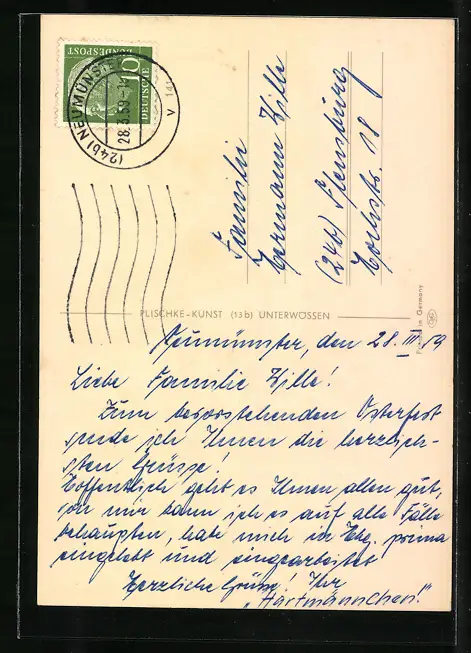 DEUTSCHE
BUNDESPOST
10
(24b) NEUMÜNSTER
28.3.59
Familie
Hermann Wille
(24b) Flensburg
Hochstr. 18
PLISCHKE-KUNST (13b) UNTERWÖSSEN
Printed in Germany
Neumünster, den 28. III. 59
Liebe Familie Wille!
Zum bevorstehenden Osterfest
sende ich Ihnen die herzlich-
sten Grüsse!
Hoffentlich geht es Ihnen allen gut,
von mir kann ich es auf alle Fälle
behaupten, habe mich in prima
eingelebt und eingearbeitet
Herzliche Grüsse! Ihr
„Hartmännchen!“